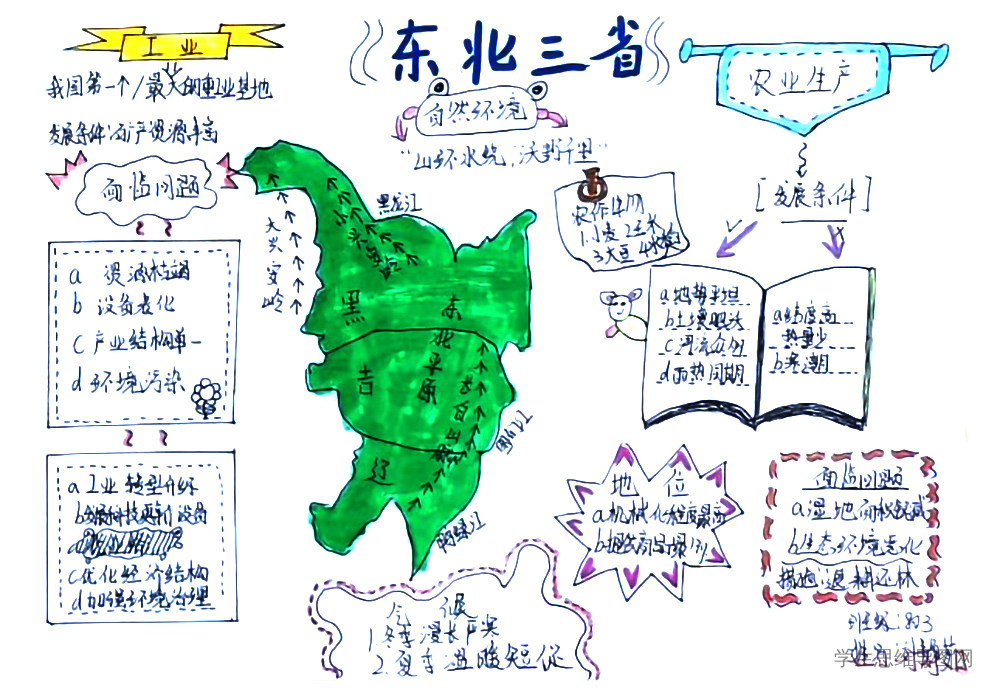 东北三省
工业
我国第一个/最大的重工业基地
发展条件:矿产资源丰富
面临问题
a 资源枯竭
b 设备老化
c 产业结构单一
d 环境污染
a 工业转型升级
c 优化经济结构
d 加强环境治理
自然环境
"山环水绕,沃野千里"
大兴安岭
小兴安岭
黑龙江
黑
吉
辽
东北平原
长白山
图们江
鸭绿江
农作物
1.小麦 2玉米
3大豆 4水稻
农业生产
[发展条件]
a地势平坦
b土壤肥沃
c河流众多
d雨热同期
a纬度高
热量少
b寒潮
地位
a机械化程度最高
面临问题
a湿地面积锐减
b生态环境恶化
措施:退耕还林
气候
1.冬季漫长严寒
2.夏季温暖短促
班级:803
姓名:
学生思维导图网